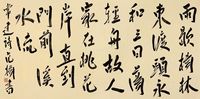 雨歇楊林
東渡頭永
和三日蕩
輕舟故人
家在桃花
岸直到
門前溪
水流
常建詩